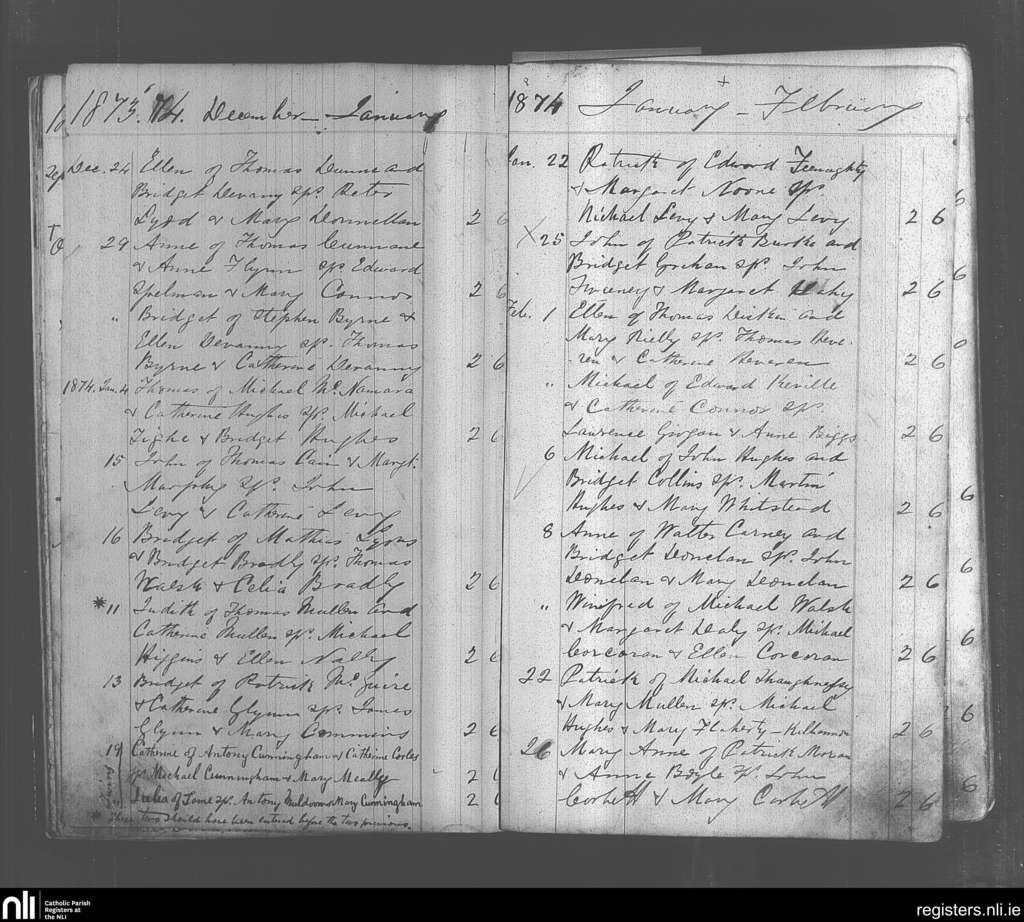 1873. 74. December - January
Dec. 24 Ellen of Thomas Dunne and
Bridget Devany sps. Peter
Lyod & Mary Donnellan 2 6
29 Anne of Thomas Cunnane
& Anne Flynn sps Edward
Spelman & Mary Connor 2 6
" Bridget of Stephen Byrne &
Ellen Devanny sps. Thomas
Byrne & Catherine Devanny 2 6
1874. Jan. 4 Thomas of Michael McNamara
& Catherine Hughes sps. Michael
Tighe & Bridget Hughes 2 6
15 John of Thomas Cain & Margt.
sps. John
Levy & Catherine Levy
16 Bridget of Mathias Lyons
& Bridget Bradly sps. Thomas
Walsh & Celia Bradly 2 6
* 11 Judith of Thomas Mullen and
Catherine Mullen sps. Michael
Higgins & Ellen Nally 2 6
13 Bridget of Patrick McGuire
& Catherine Glynn sps. James
Glynn & Mary Commins 2 6
19 Catherine of Antony Cunningham & Catherine Corles
sps. Michael Cunningham & Mary Meally 2 6
" Julia of Same sps. Antony Muldoon & Mary Cunningham 2 6
These two should have been entered before the two previous.
1874 January - February
Jan. 22 Patrick of Edward Feenaghty
& Margaret Noone sps
Michael Levy & Mary Levy 2 6
X 25 John of Patrick Burke and
Bridget Grehan sps. John
Tweeney & Margaret Leahy 2 6
Feb. 1 Ellen of Thomas Diskin and
Mary Rielly sps. Thomas Heve-
ren & Catherine Heveren 2 6
" Michael of Edward Keville
& Catherine Connor sps.
Lawrence Grogan & Anne Biggs 2 6
6 Michael of John Hughes and
Bridget Collins sps. Martin
Hughes & Mary Whitstead 2 6
8 Anne of Walter Carney and
Bridget Donelan sps. John
Donelan & Mary Donelan 2 6
" Winifred of Michael Walsh
& Margaret Daly sps. Michael
Corcoran & Ellen Corcoran 2 6
22 Patrick of Michael Shaughnessy
& Mary Mullen sps. Michael
Hughes & Mary Flaherty - 2 6
26 Mary Anne of Patrick Moran
& Anne Boyle sps. John
Corbett & Mary Corbett 2 6
nli Catholic Parish
Registers at
the NLI
registers.nli.ie